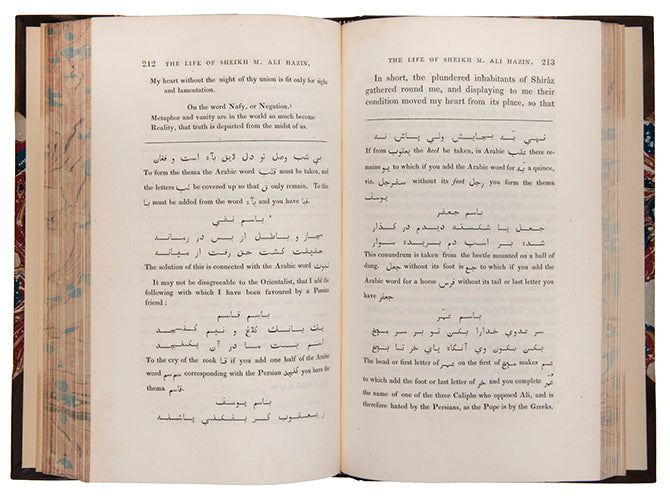 212 THE LIFE OF SHEIKH M. ALI HAZIN.
My heart without the night of thy union is fit only for sighs
and lamentation.
On the word Nafy, or Negation.¹
Metaphor and vanity are in the world so much become
Reality, that truth is departed from the midst of us.
بي شب وصل تو دل لايق بآه است و فغان
To form the thema the Arabic word قلب must be taken, and
the letters لب be covered up so that ق only remain. To this
با must be added from the word بآه and you have
باسم نفي
مجاز و باطل از بس در زمانه
حقيقت كشت حق رفت از ميانه
The solution of this is connected with the Arabic word
It may not be disagreeable to the Orientalist, that I add the
following with which I have been favoured by a Persian
friend:
باسم قاسم
يك بانك كلاغ و نيم كنجد
اسم بت ما در آن بكنجد
To the cry of the rook قا if you add one half of the Arabic
word سمسم corresponding with the Persian كنجد you have the
thema قاسم.
باسم يوسف
ز يعقوب كر بفكني پاشنه
THE LIFE OF SHEIKH M. ALI HAZIN. 213
In short, the plundered inhabitants of Shiráz
gathered round me, and displaying to me their
condition moved my heart from its place, so that
نهي به بجايش وني پاش نه
If from يعقوب the heel be taken, in Arabic عقب there re-
mains يو to which if you add the Arabic word for به a quince,
viz. سفرجل without its foot رجل you form the thema
يوسف
باسم جعفر
جعل پا شكسته ديدم در كذار
شده بر اسب دم بريده سوار
This conundrum is taken from the beetle mounted on a ball of
dung. جعل without its foot is جع to which if you add the
Arabic word for a horse فرس without its tail or last letter you
have جعفر
باسم عمر
سر عدوي خدارا بكن تو بر سر ميخ
بكن بكون وي آنكاه پاي خر تا بيخ
The head or first letter of on the first of ميخ makes عم
to which add the foot or last letter of خر and you complete عمر
the name of one of the three Caliphs who opposed Ali, and is
therefore hated by the Persians, as the Pope is by the Greeks.